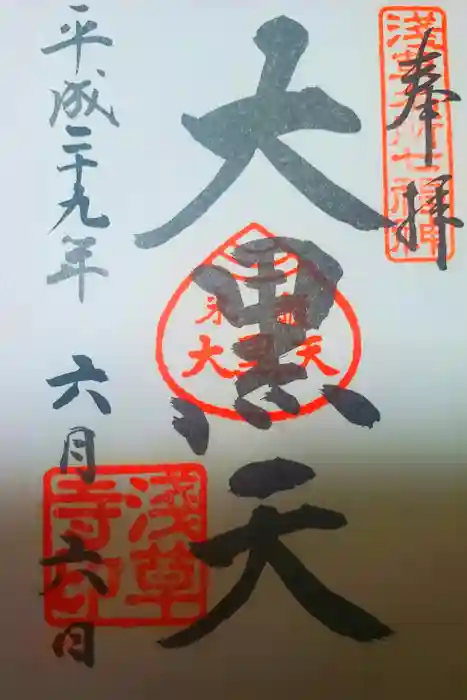 奉拝
淺草名所七福神
大黒天
大黒天
平成二十九年 六月六日
淺草
寺印